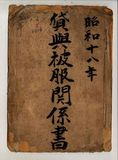 昭和十八年
貸與被服関係書